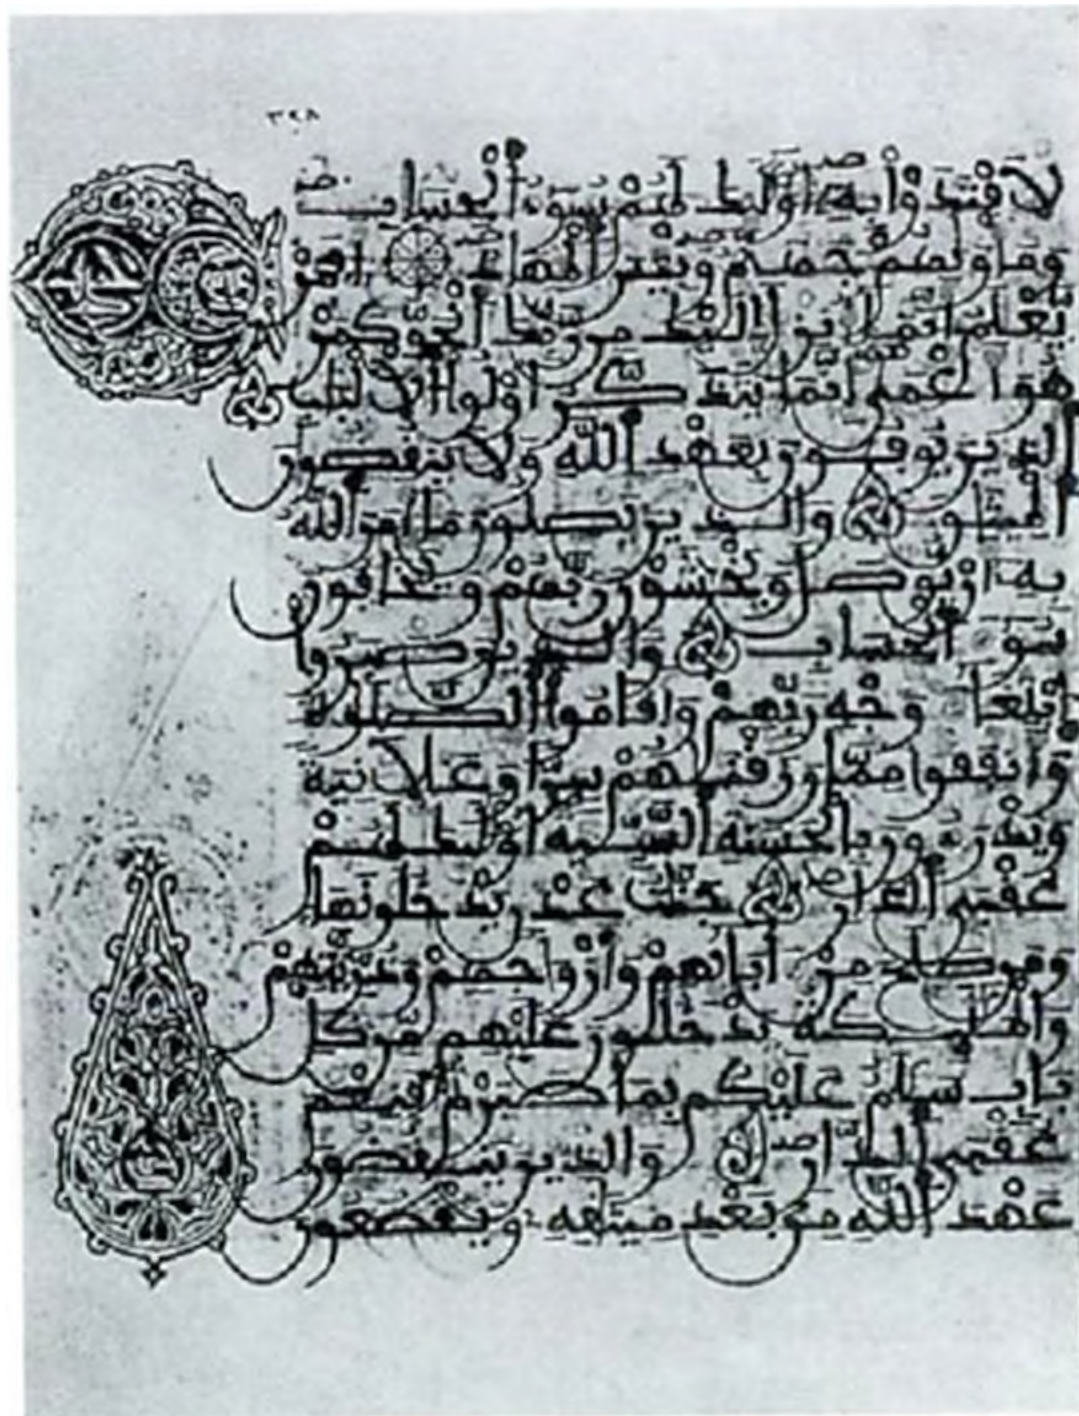 لافتدوا به أولئك لهم سوء الحساب
وماويهم جهنم وبئس المهاد أفمن
يعلم أنما أنزل إليك من ربك الحق كمن
هو أعمى إنما يتذكر أولوا الألبب
الذين يوفون بعهد الله ولا ينقضون
الميثق والذين يصلون ما أمر الله
به أن يوصل ويخشون ربهم ويخافون
سوء الحساب والذين صبروا
ابتغاء وجه ربهم وأقاموا الصلوة
وأنفقوا مما رزقنهم سرا وعلانية
ويدرءون بالحسنة السيئة أولئك لهم
عقبى الدار جنت عدن يدخلونها
ومن صلح من ءابائهم وأزوجهم وذريتهم
والملئكة يدخلون عليهم من كل
باب سلم عليكم بما صبرتم فنعم
عقبى الدار والذين ينقضون
عهد الله من بعد ميثقه ويقطعون